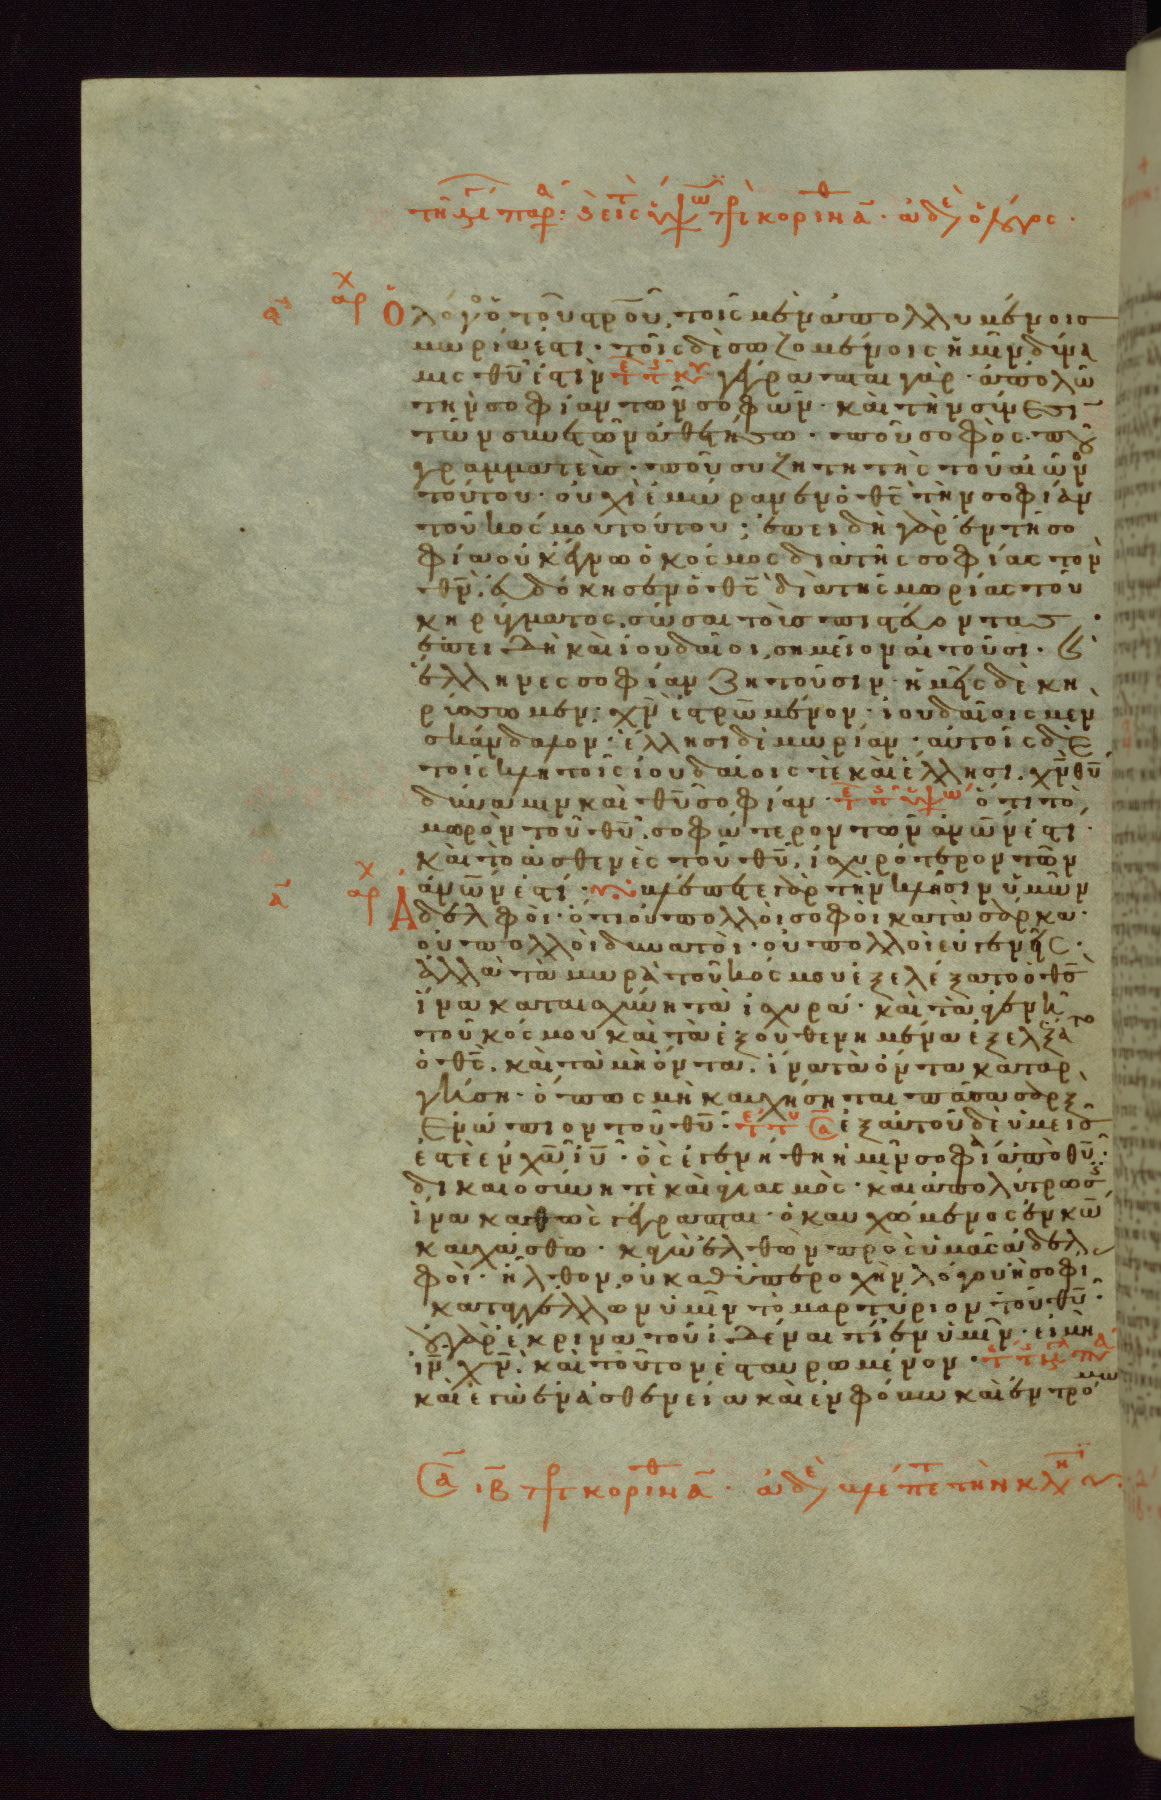 τῆ μεγ παρ: ϛ εἰς ὕψω πρ κορινθ α· ἀδελ ὁ λόγος·
Ὁ λόγος ὁ τοῦ σταυροῦ, τοῖς μὲν ἀπολλυμένοις
μωρία ἐστι· τοῖς δὲ σωζομένοις ἡμῖν δύνα
μις θυ ἐστὶν γέγραπται γὰρ· ἀπολῶ
τὴν σοφίαν τῶν σοφῶν· καὶ τὴν σύνεσι
τῶν συνετῶν ἀθετήσω· ποῦ σοφὸς· ποῦ
γραμματεὺς· ποῦ συζητητὴς τοῦ αἰῶνο
τούτου· οὐχὶ ἐμώρανεν ὁ θς τὴν σοφίαν
τοῦ κόσμου τούτου; ἐπειδὴ γὰρ ἐν τῆ σο
φία οὐκ ἔγνω ὁ κόσμος διὰ τῆς σοφίας τὸν
θν, εὐδόκησεν ὁ θς διὰ τῆς μωρίας τοῦ
κηρύγματος, σῶσαι τοὺς πιστεύοντας·
ἐπειδὴ καὶ ἰουδαῖοι, σημεῖον αἰτοῦσι· καὶ
ἕλληνες σοφίαν ζητοῦσιν· ἡμεῖς δὲ κη
ρύσσομεν· χν ἐστρωμένον· ἰουδαίοις μὲν
σκάνδαλον· ἕλλησι δὲ μωρίαν· αὐτοῖς δὲ
τοῖς κλητοῖς ἰουδαίοις τὲ καὶ ἕλλησι. χν θυ
δύναμιν καὶ θυ σοφίαν· ὅτι τὸ
μωρὸν τοῦ θυ, σοφώτερον τῶν ανων ἐστὶ·
καὶ τὸ ἀσθενὲς τοῦ θυ, ἰσχυρότερον τῶν
ανων ἐστί· βλέπετε γὰρ τὴν κλῆσιν ὑμῶν
Ἀδελφοὶ· ὅτι οὐ πολλοὶ σοφοὶ κατὰ σάρκα·
οὐ πολλοὶ δυνατοὶ· οὐ πολλοὶ εὐγενεῖς·
ἀλλὰ τὰ μωρὰ τοῦ κόσμου ἐξελέξατο ὁ θς
ἵνα καταισχύνη τὰ ἰσχυρά· καὶ τὰ ἀγενῆ
τοῦ κόσμου καὶ τὰ ἐξουθενημένα ἐξελέξατο
ὁ θς. καὶ τὰ μὴ ὄντα. ἵνα τὰ ὄντα καταρ
γήση· ὅπως μὴ καυχήσηται πᾶσα σὰρξ
Ἐνώπιον τοῦ θυ· ἐξ αὐτοῦ δὲ ὑμεῖς
ἐστὲ ἐν χω ιυ· ὃς ἐγενήθη ἡμῖν σοφία ἀπὸ θυ·
δικαιοσύνη τὲ καὶ ἁγιασμὸς· καὶ ἀπολύτρωσις
ἵνα καθὼς γέγραπται· ὁ καυχώμενος ἐν κω
καυχάσθω· κἀγὼ ἐλθὼν πρὸς ὑμᾶς ἀδελ
φοὶ· ἦλθον, οὐ καθ' ὑπεροχὴν λόγου ἢ σοφί
καταγγέλλων ὑμῖν τὸ μαρτύριον τοῦ θυ·
οὐ γὰρ ἔκρινα τοῦ εἰδέναι τι ἐν ὑμῖν· εἰ μὴ
ιν χν. καὶ τοῦτον ἐσταυρωμένον·
καὶ ἐγὼ ἐν ἀσθενεία καὶ ἐν φόβω καὶ ἐν τρόμω
ιβ πρ κορινθ α· ἀδελ βλέπετε τὴν κλῆσιν